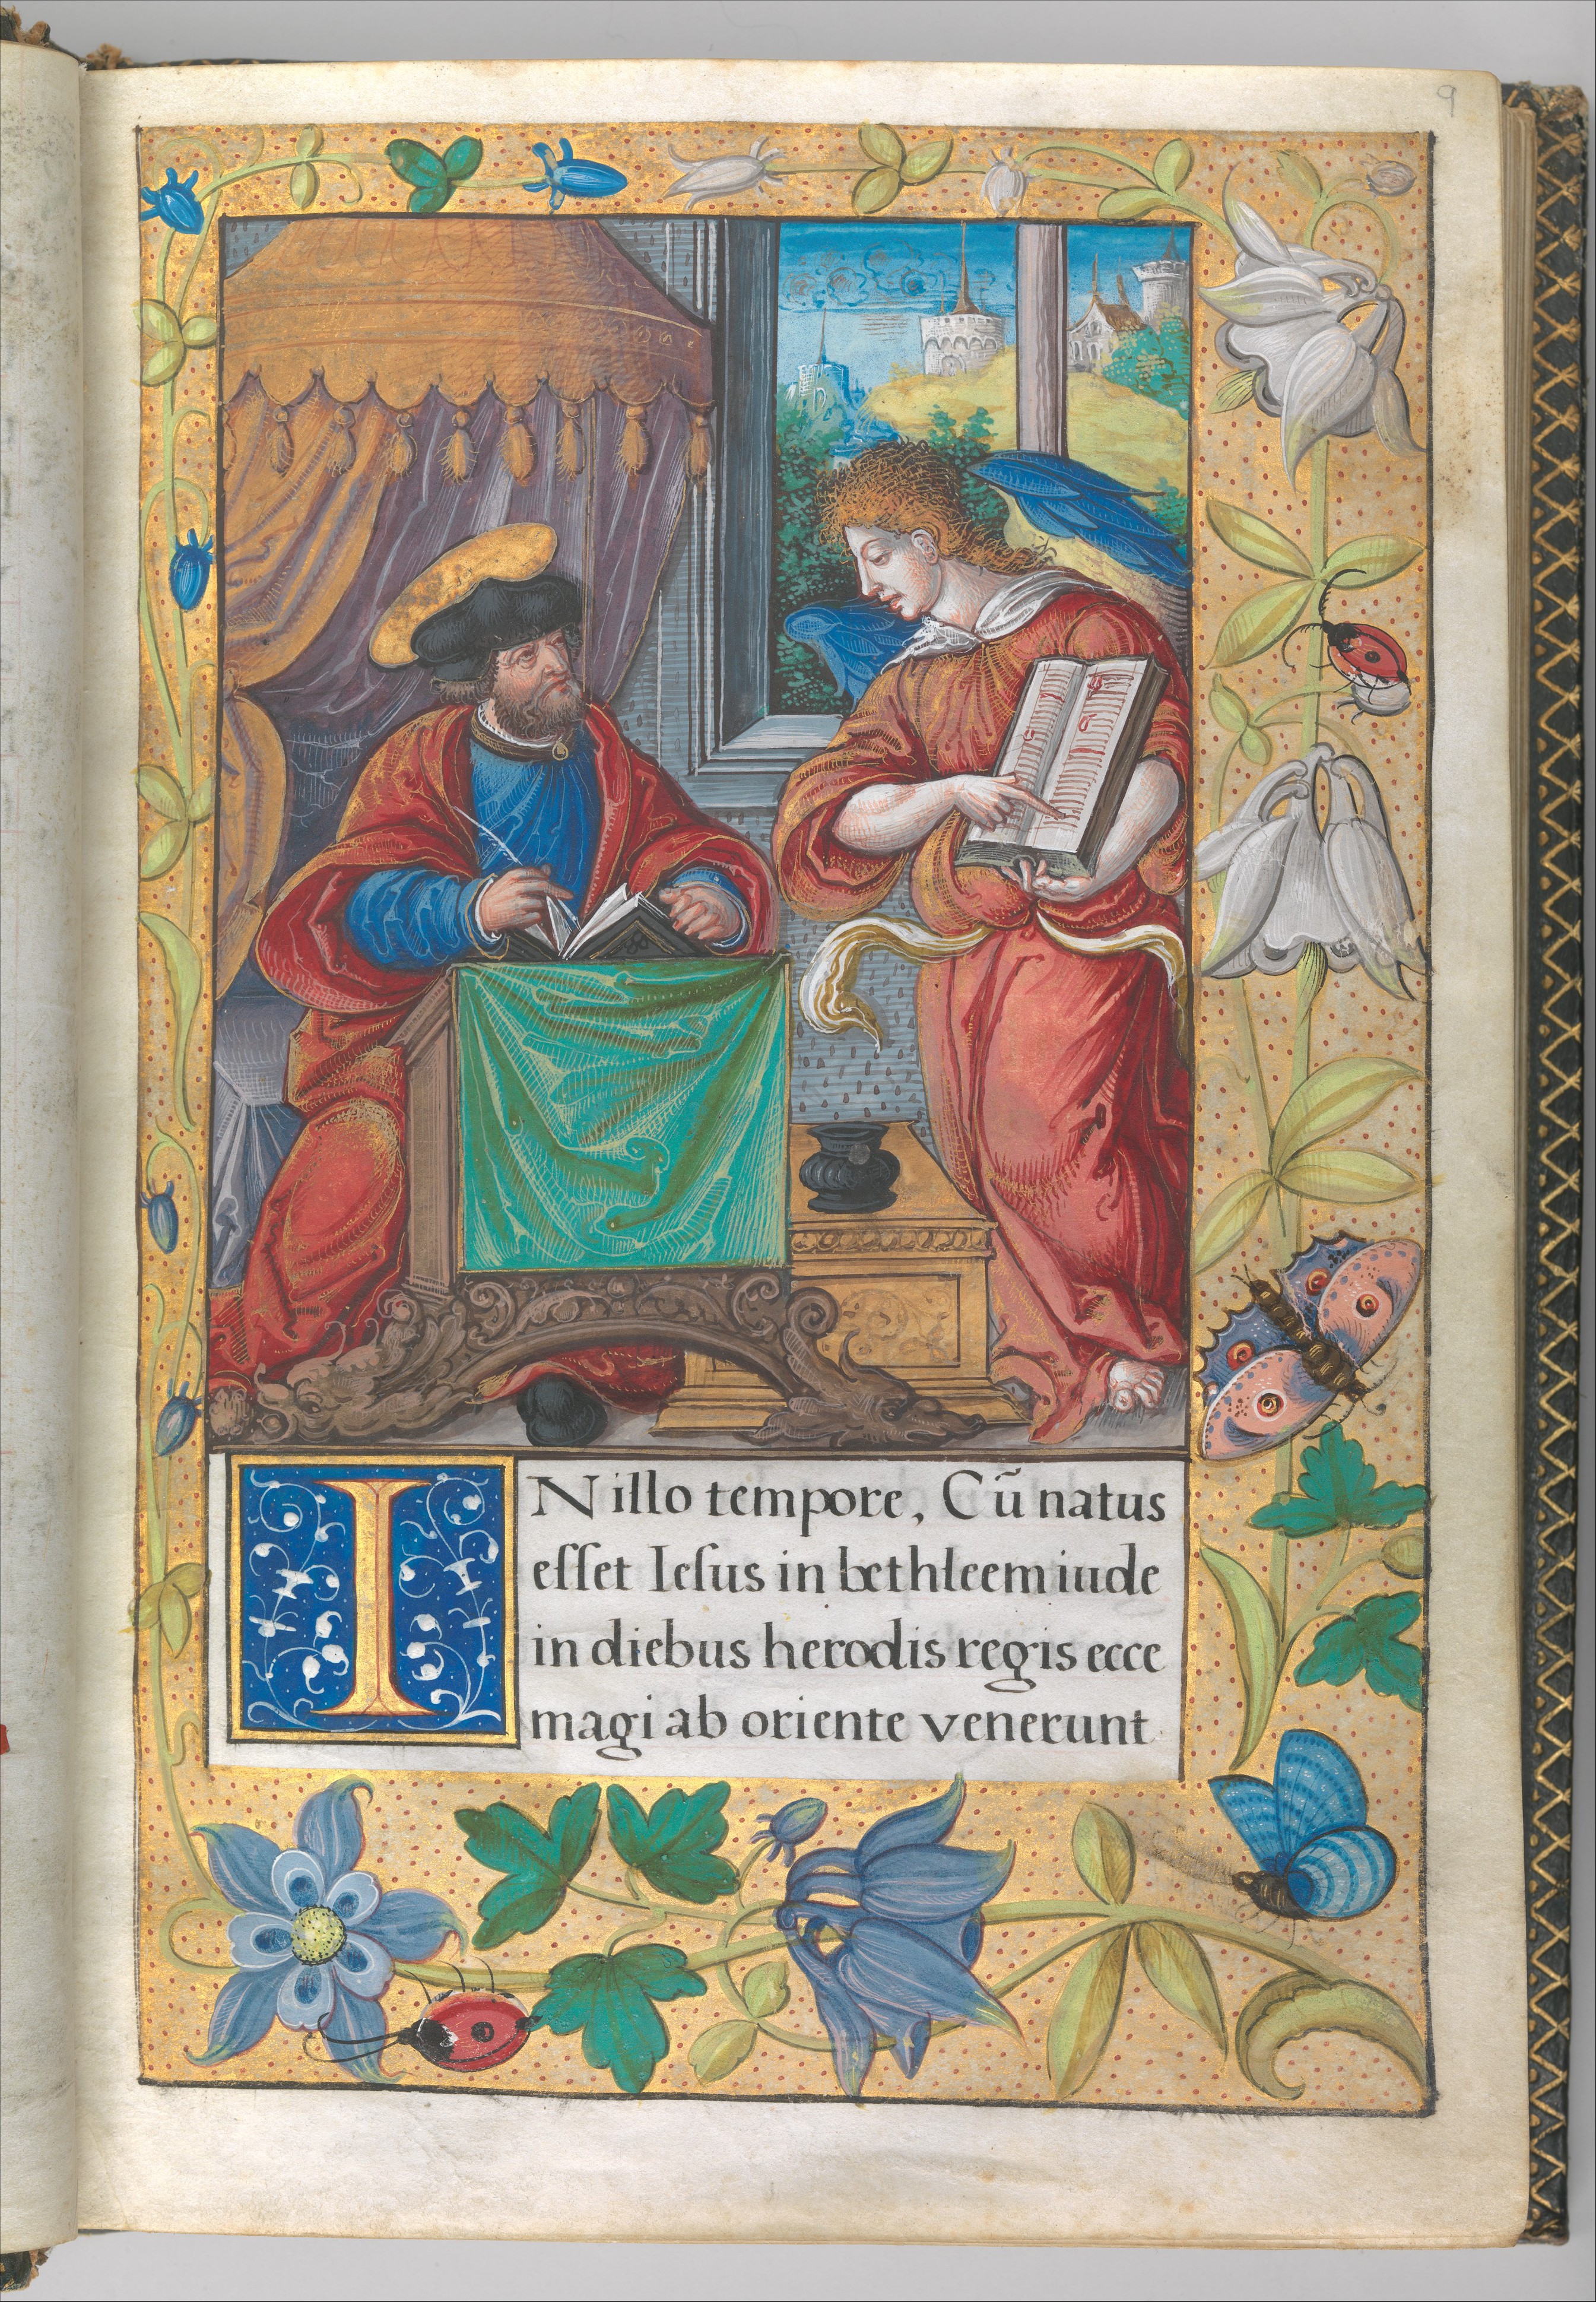 9
IN illo tempore, Cũ natus
eſſet Ieſus in bethleem iude
in diebus herodis regis ecce
magi ab oriente venerunt